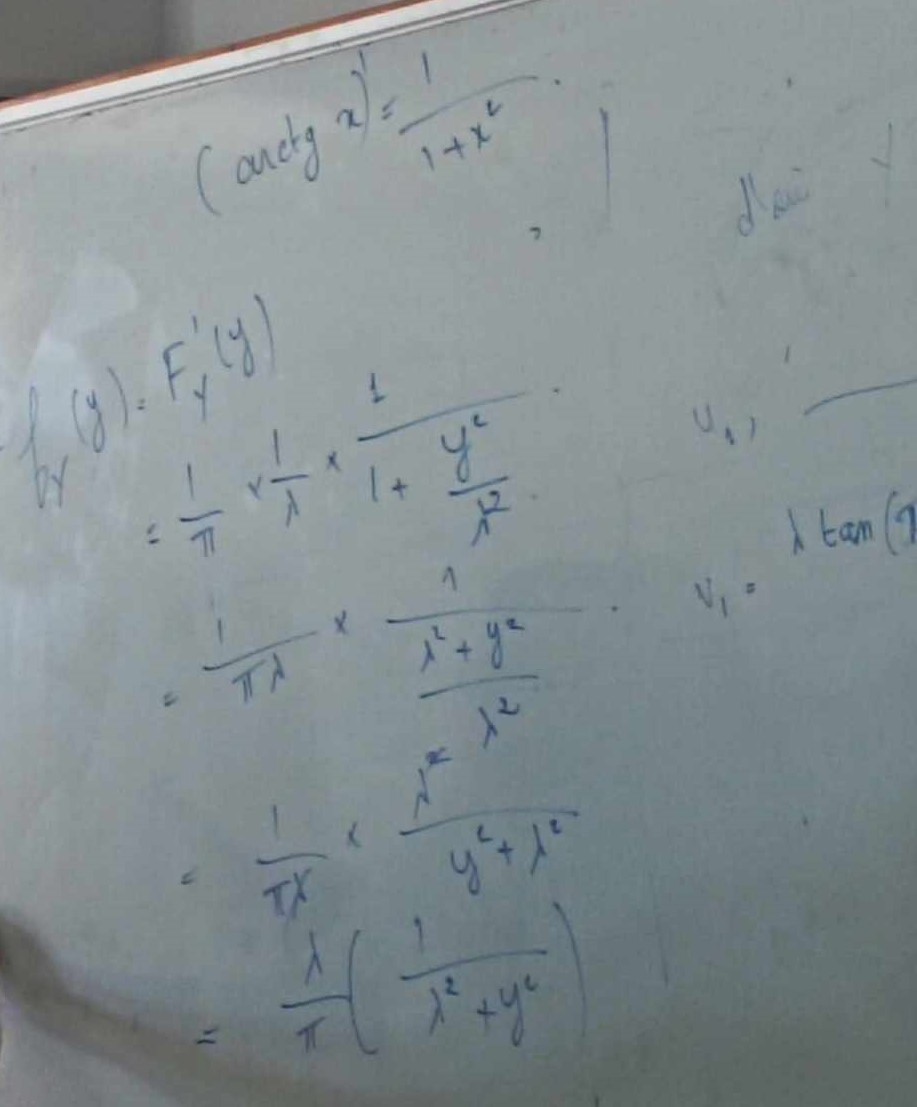 (arctg x)' = 1/(1+x²)
f_Y(y) = F'_Y(y)
= 1/π × 1/λ × 1/(1 + y²/λ²)
= 1/(πλ) × 1/((λ² + y²)/λ²)
= 1/(πλ) × λ²/(y² + λ²)
= λ/π (1/(λ² + y²))
V₁ = λ tan(